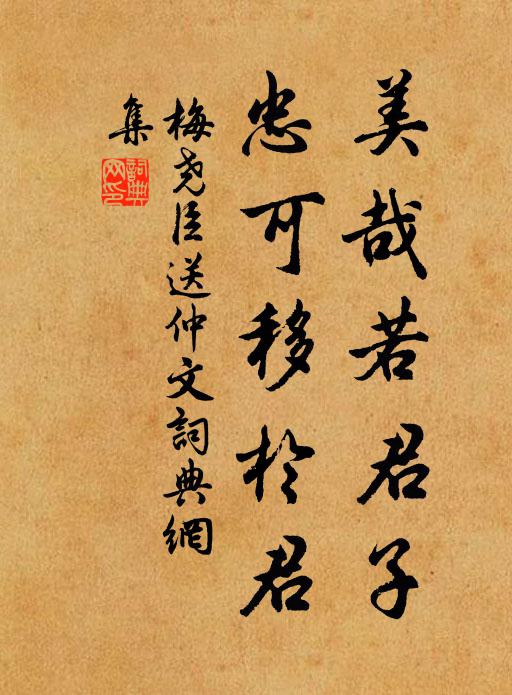 美哉若君子
忠可移於君
梅尧臣送仲文詞典網
集
詞典
网印